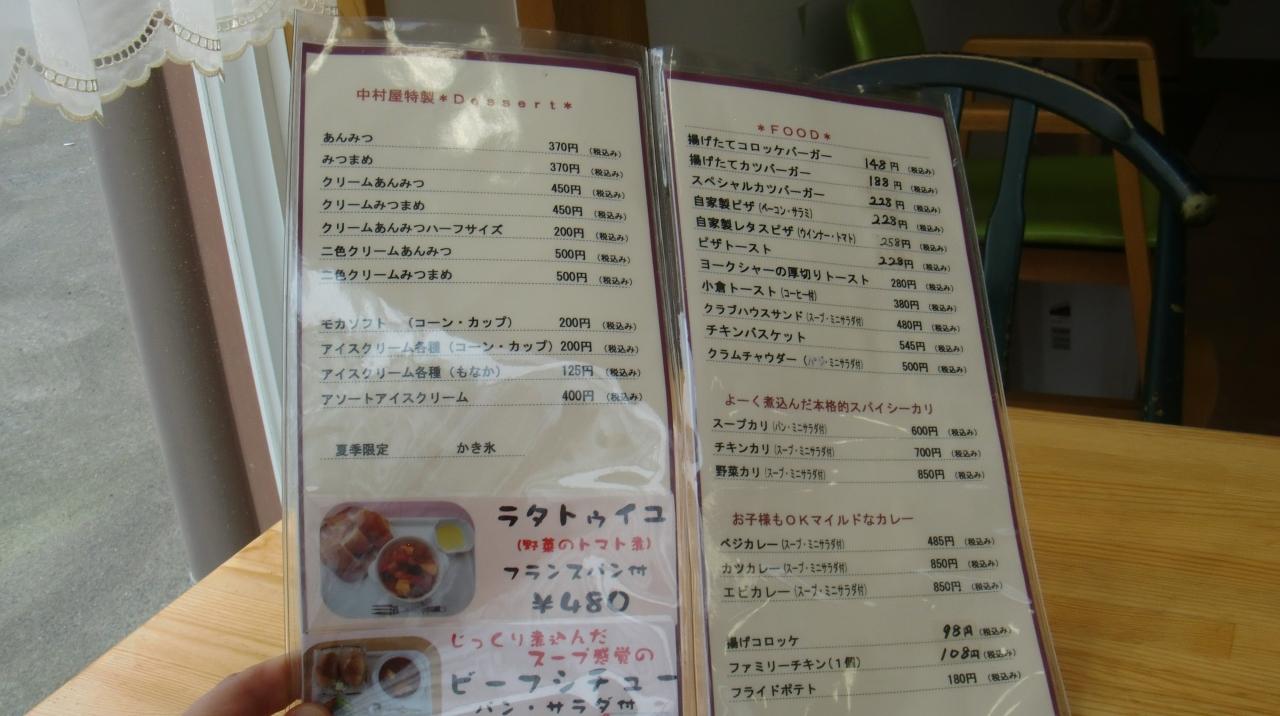 中村屋特製＊Dessert＊
あんみつ 370円 (税込み)
みつまめ 370円 (税込み)
クリームあんみつ 450円 (税込み)
クリームみつまめ 450円 (税込み)
クリームあんみつハーフサイズ 200円 (税込み)
二色クリームあんみつ 500円 (税込み)
二色クリームみつまめ 500円 (税込み)
モカソフト (コーン・カップ) 200円 (税込み)
アイスクリーム各種 (コーン・カップ) 200円 (税込み)
アイスクリーム各種 (もなか) 125円 (税込み)
アソートアイスクリーム 400円 (税込み)
夏季限定 かき氷
ラタトゥイユ
(野菜のトマト煮)
フランスパン付
¥480
じっくり煮込んだ
スープ感覚の
ビーフシチュー
パン・サラダ付
＊FOOD＊
揚げたてコロッケバーガー 148円 (税込み)
揚げたてカツバーガー 188円 (税込み)
スペシャルカツバーガー 228円 (税込み)
自家製ピザ (ベーコン・サラミ) 228円 (税込み)
自家製レタスピザ (ウインナー・トマト) 258円 (税込み)
ピザトースト 228円 (税込み)
ヨークシャーの厚切りトースト 280円 (税込み)
小倉トースト (コーヒー付) 380円 (税込み)
クラブハウスサンド (スープ・ミニサラダ付) 480円 (税込み)
チキンバスケット 545円 (税込み)
クラムチャウダー (パン・ミニサラダ付) 500円 (税込み)
よーく煮込んだ本格的スパイシーカリ
スープカリ (パン・ミニサラダ付) 600円 (税込み)
チキンカリ (スープ・ミニサラダ付) 700円 (税込み)
野菜カリ (スープ・ミニサラダ付) 850円 (税込み)
お子様もOKマイルドなカレー
ベジカレー (スープ・ミニサラダ付) 485円 (税込み)
カツカレー (スープ・ミニサラダ付) 850円 (税込み)
エビカレー (スープ・ミニサラダ付) 850円 (税込み)
揚げコロッケ 98円 (税込み)
ファミリーチキン (1個) 108円 (税込み)
フライドポテト 180円 (税込み)